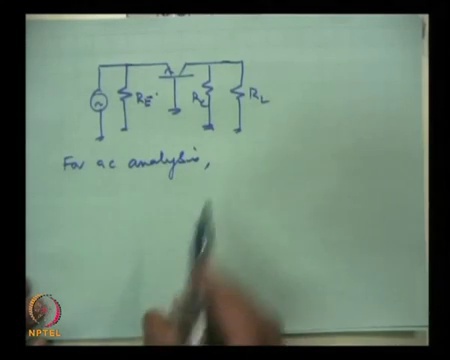 R_E R_C R_L
For ac analysis,
NPTEL